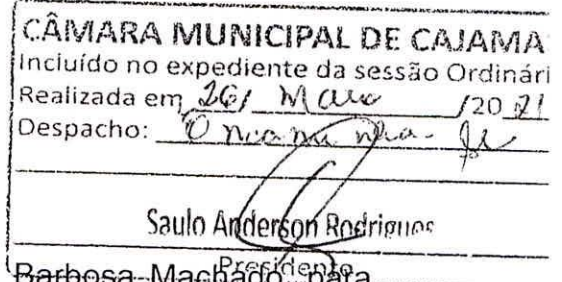 CÂMARA MUNICIPAL DE CAJAMA
Incluído no expediente da sessão Ordinári
Realizada em 26/ Maio /20 21
Despacho:
Saulo Anderson Rodrigues
Presidente
Barbosa Machado, para